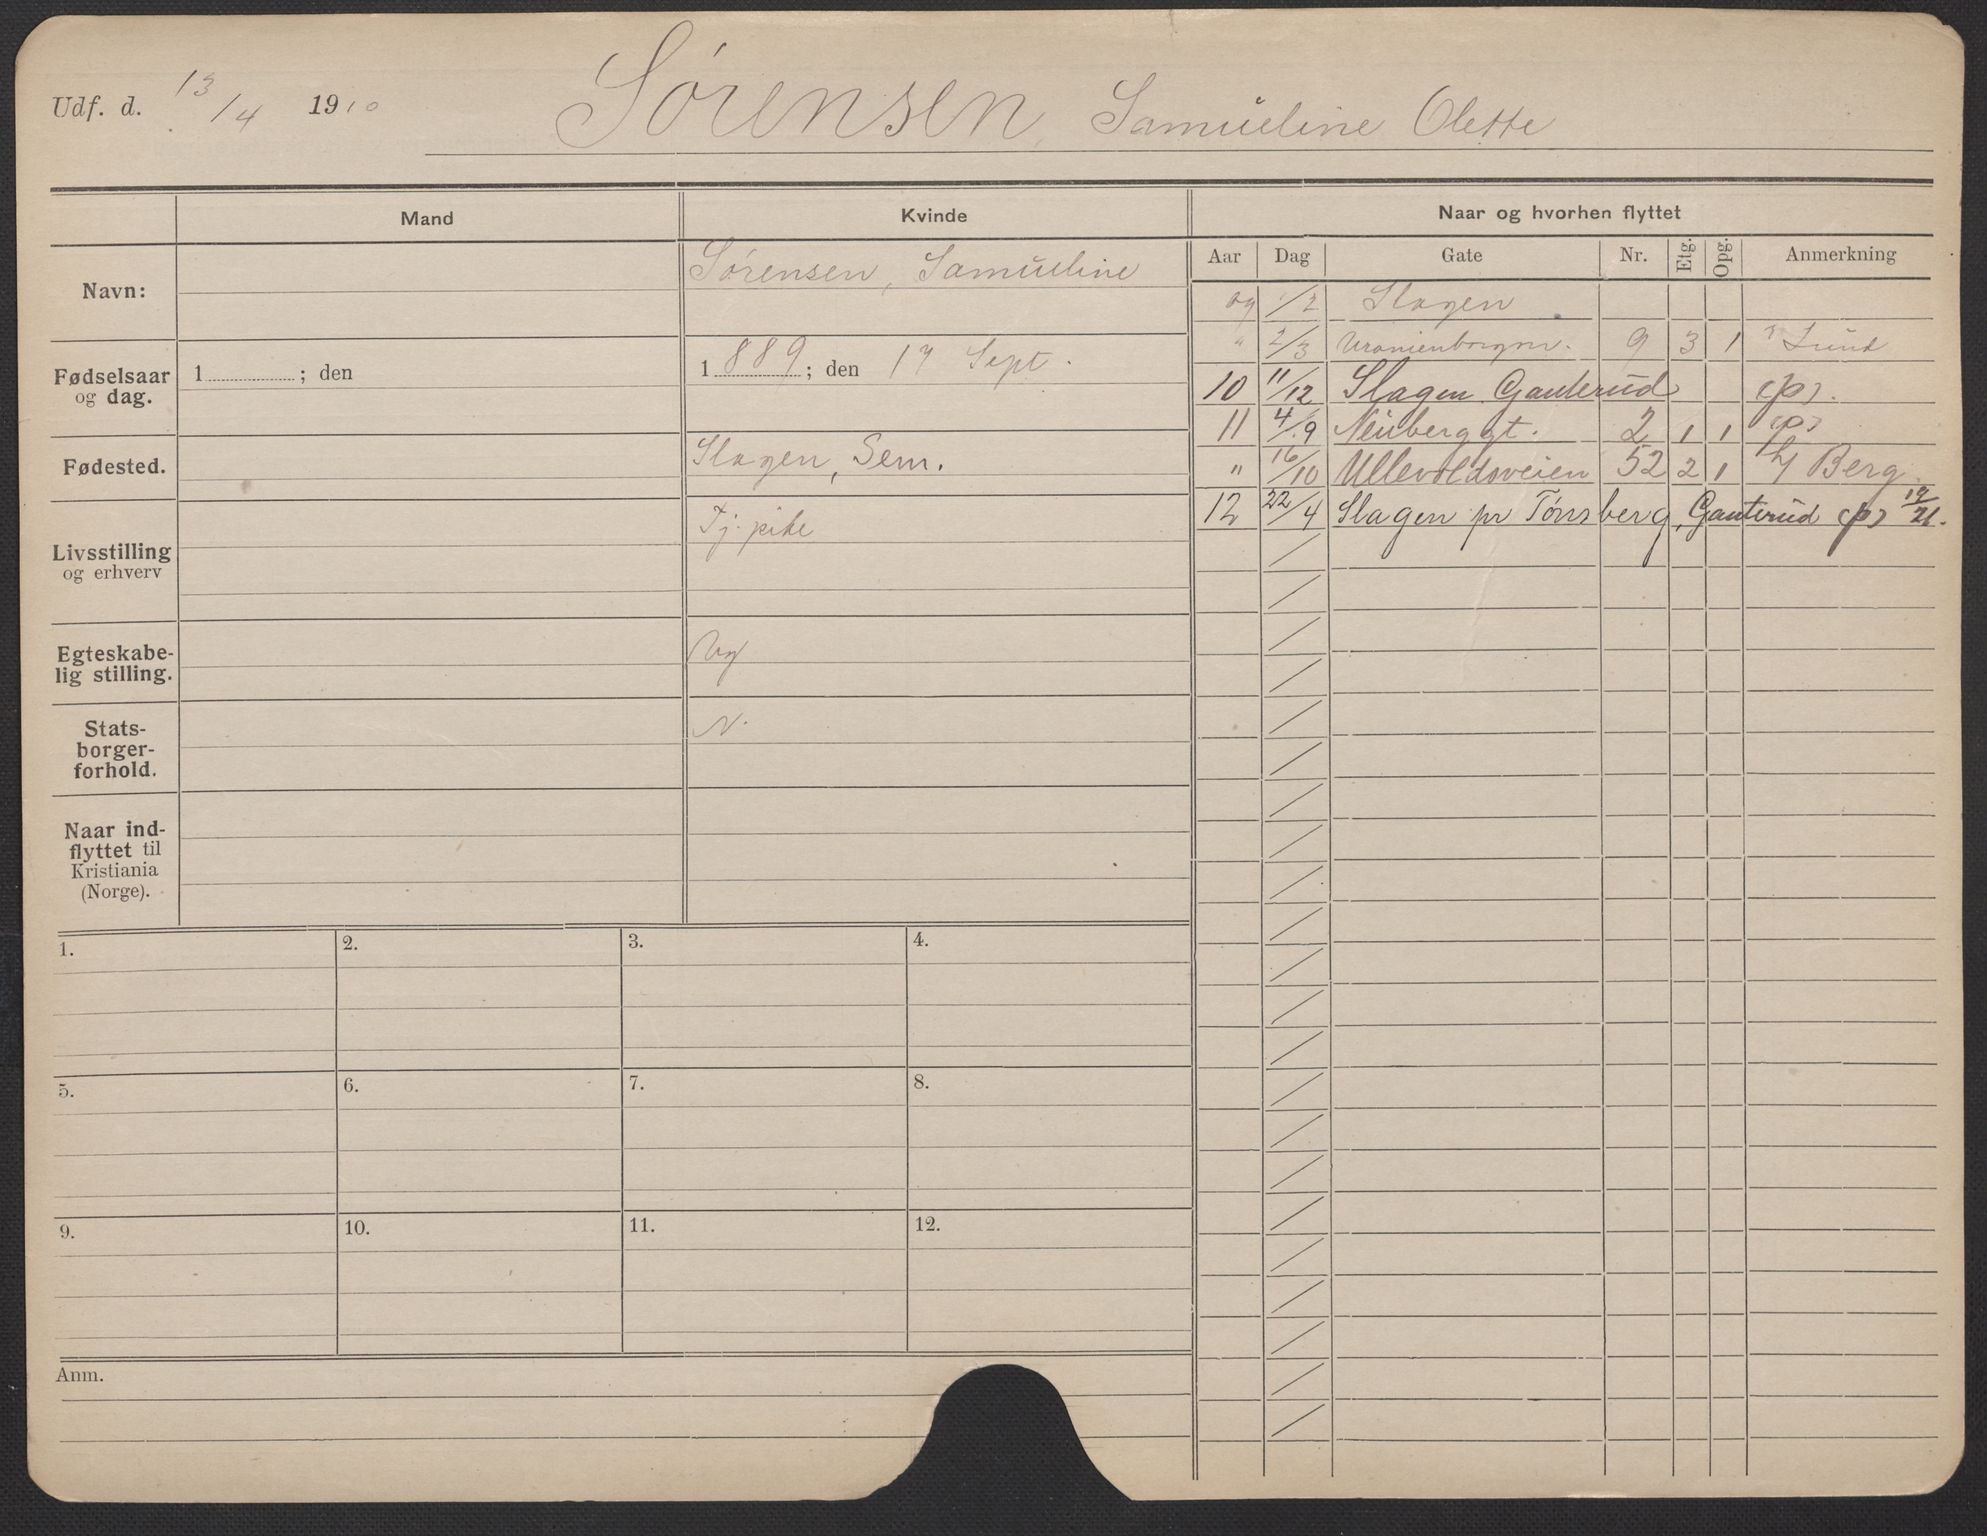 Udf. d. 13/4 1910 Sørensen, Samueline Olette
Mand Kvinde Naar og hvorhen flyttet
Aar Dag Gate Nr. Etg. Opg. Anmerkning
Navn: Sørensen, Samueline
Fødselsaar og dag. 1 ; den 1889; den 17 Sept.
Fødested. Slagen, Sem.
Livsstilling og erhverv Tj. pike
Egteskabe-
lig stilling. Ug
Stats-
borger-
forhold. N.
Naar ind-
flyttet til
Kristiania
(Norge).
09 1/2 Slagen
" 2/3 Uranienborgvn. 9 3 1 Lund
10 11/12 Slagen Gauterud (p).
11 4/9 Neuberggt. 2 1 1 (p)
" 16/10 Ullevoldsveien 52 2 1 Berg
12 22/4 Slagen pr Tønsberg, Gauterud (p) 19/21.
1. 2. 3. 4.
5. 6. 7. 8.
9. 10. 11. 12.
Anm.